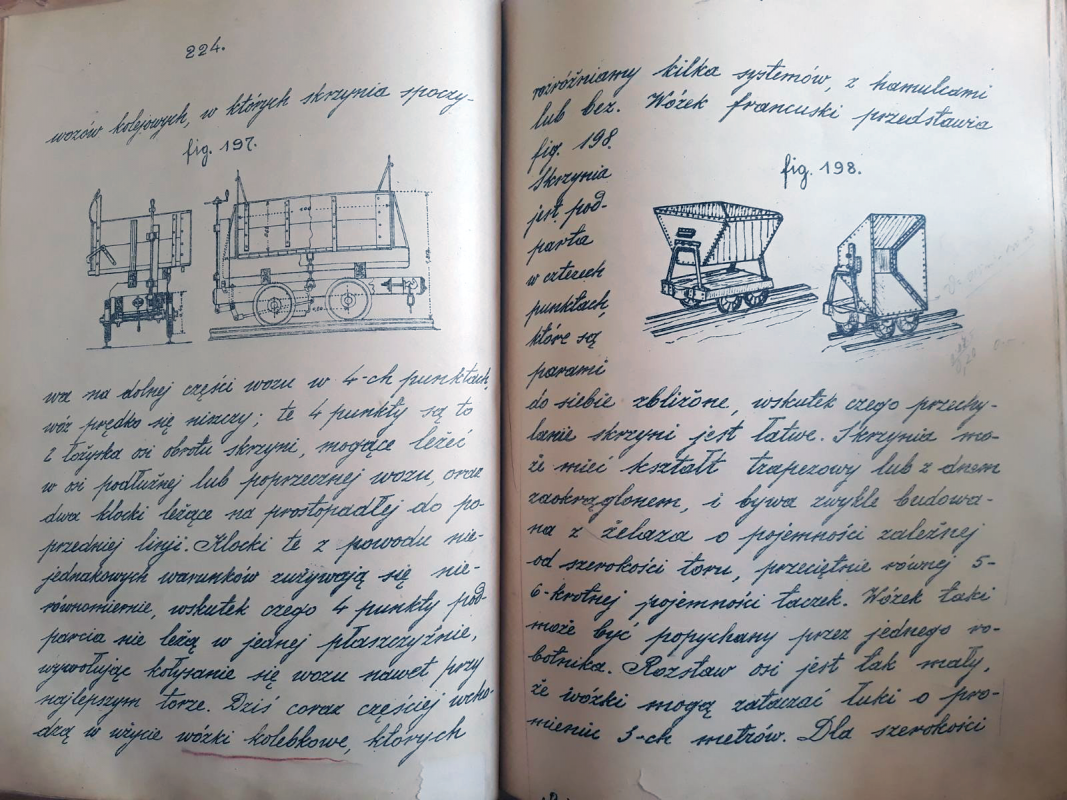 224.
wozów kolejowych, w których skrzynia spoczy-
fig. 197.
wa na dolnej części wozu w 4-ch punktach,
wóz prędko się niszczy; te 4 punkty są to
2 łożyska osi obrotu skrzyni, mogące leżeć
w osi podłużnej lub poprzecznej wozu, oraz
dwa klocki leżące na prostopadłej do po-
przedniej linji. Klocki te z powodu nie-
jednakowych warunków zużywają się nie-
równomiernie, wskutek czego 4 punkty pod-
parcia nie leżą w jednej płaszczyźnie,
wywołując kołysanie się wozu nawet przy
najlepszym torze. Dziś coraz częściej wcho-
dzą w użycie wózki kolebkowe, których
rozróżniamy kilka systemów, z hamulcami
lub bez. Wózek francuski przedstawia
fig. 198.
fig. 198.
Skrzynia
jest pod-
parta
w czterech
punktach,
które są
parami
do siebie zbliżone, wskutek czego przechy-
lanie skrzyni jest łatwe. Skrzynia mo-
że mieć kształt trapezowy lub z dnem
zaokrąglonem, i bywa zwykle budowa-
na z żelaza o pojemności zależnej
od szerokości toru, przeciętnie równej 5-
6-krotnej pojemności taczek. Wózek taki
może być popychany przez jednego ro-
botnika. Rozstaw osi jest tak mały,
że wózki mogą zataczać łuki o pro-
mieniu 5-ch metrów. Dla szerokości